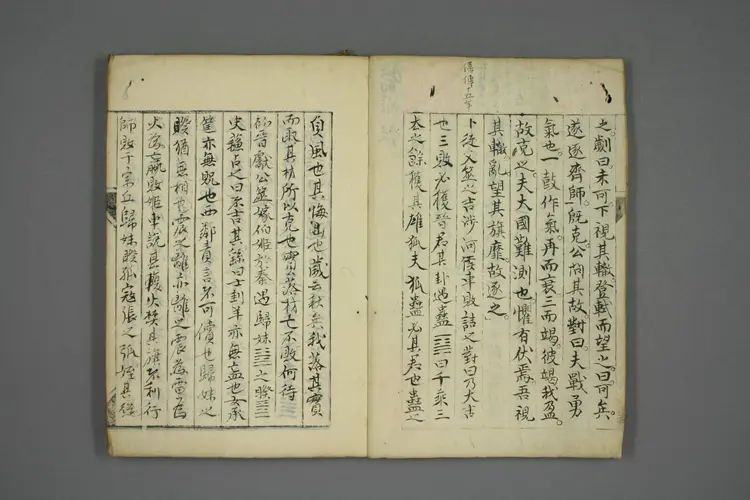 之劌曰未可下視其轍登軾而望之曰可矣
遂逐齊師既克公問其故對曰夫戰勇
氣也一鼓作氣再而衰三而竭彼竭我盈
故克之夫大國難測也懼有伏焉吾視
其轍亂望其旗靡故逐之
僖傳十五年
卜徒父筮之吉涉河侯車敗詰之對曰乃大吉
也三敗必獲晉君其卦遇蠱䷑曰千乘三
去之餘獲其雄狐夫狐蠱必其君也蠱之
貞風也其悔山也歲云秋矣我落其實
而取其材所以克也實落材亡不敗何待
初晉獻公筮嫁伯姬於秦遇歸妹䷵之睽䷥
史蘇占之曰不吉其繇曰士刲羊亦無衁也女承
筐亦無貺也西鄰責言不可償也歸妹之
睽猶無相也震之離亦離之震為雷為
火為嬴敗姬車說其輹火焚其旗不利行
師敗于宗丘歸妹睽孤寇張之弧姪其從